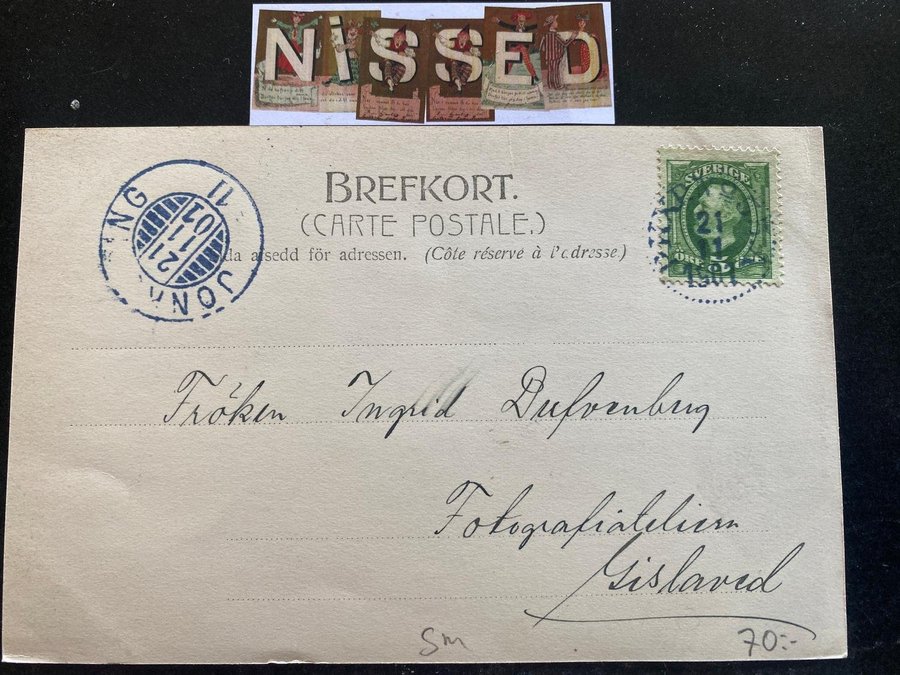 NISSED
BREFKORT.
(CARTE POSTALE.)
afsedd för adressen. (Côte réservé à l'adresse.)
JÖNK ING
21
11
01
11
SVERIGE
ÖRE
5
21
11
1901
Fröken Ingrid Dufvenberg
Fotografiateliern
Gislaved
Sm
70:-